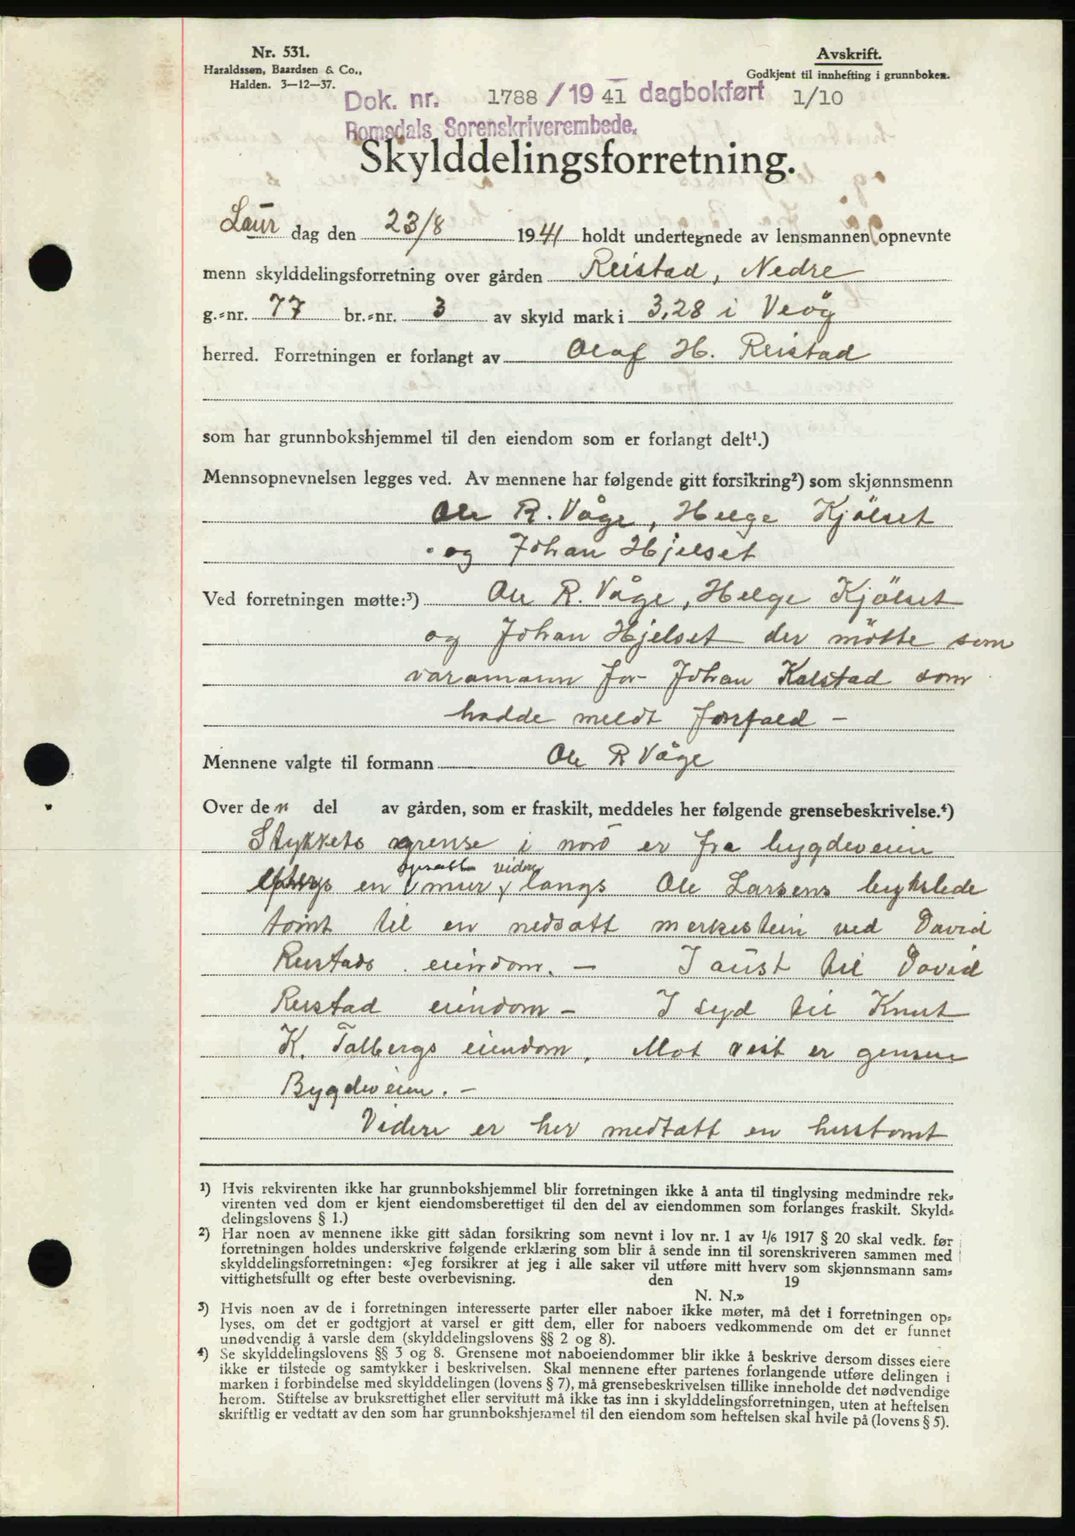 Nr. 531.
Haraldssen, Baardsen & Co.,
Halden. 3-12-37.
Avskrift.
Godkjent til innhefting i grunnboken.
Dok. nr. 1788 / 19 41 dagbokført 1/10
Romsdals Sorenskriverembede.
Skylddelingsforretning.
Laur dag den 23/8 1941 holdt undertegnede av lensmannen opnevnte
menn skylddelingsforretning over gården Reistad, Nedre
g.-nr. 77 br.-nr. 3 av skyld mark i 3,28 i Veöy
herred. Forretningen er forlangt av Olaf H. Reistad
som har grunnbokshjemmel til den eiendom som er forlangt delt¹.)
Mennsopnevnelsen legges ved. Av mennene har følgende gitt forsikring²) som skjønnsmenn
Ole R. Våge, Helge Kjölset
og Johan Hjelset
Ved forretningen møtte:³) Ole R. Våge, Helge Kjölset
og Johan Hjelset der mötte som
varamann for Johan Kalstad som
hadde meldt forfald –
Mennene valgte til formann Ole R Våge
Over den del av gården, som er fraskilt, meddeles her følgende grensebeskrivelse.⁴)
Stykkets grense i nord er fra bygdeveien
opsatt vidre
en mur langs Ole Larsens bykslede
tomt til en nedsatt merkestein ved David
Reistads eiendom. – I aust til David
Reistad eiendom – I syd til Knut
K. Talbergs eiendom. Mot vest er gensen
Bygdeveien. –
Videre er her medtatt en hustomt
¹) Hvis rekvirenten ikke har grunnbokshjemmel blir forretningen ikke å anta til tinglysing medmindre rek-
virenten ved dom er kjent eiendomsberettiget til den del av eiendommen som forlanges fraskilt. Skyld-
delingslovens § 1.)
²) Har noen av mennene ikke gitt sådan forsikring som nevnt i lov nr. 1 av 1/6 1917 § 20 skal vedk. før
forretningen holdes underskrive følgende erklæring som blir å sende inn til sorenskriveren sammen med
skylddelingsforretningen: «Jeg forsikrer at jeg i alle saker vil utføre mitt hverv som skjønnsmann sam-
vittighetsfullt og efter beste overbevisning. den 19
N. N.»
³) Hvis noen av de i forretningen interesserte parter eller naboer ikke møter, må det i forretningen op-
lyses, om det er godtgjort at varsel er gitt dem, eller for naboers vedkommende om det er funnet
unødvendig å varsle dem (skylddelingslovens §§ 2 og 8).
⁴) Se skylddelingslovens §§ 3 og 8. Grensene mot naboeiendommer blir ikke å beskrive dersom disses eiere
ikke er tilstede og samtykker i beskrivelsen. Skal mennene efter partenes forlangende utføre delingen i
marken i forbindelse med skylddelingen (lovens § 7), må grensebeskrivelsen tillike inneholde det nødvendige
herom. Stiftelse av bruksrettighet eller servitutt må ikke tas inn i skylddelingsforretningen, uten at heftelsen
skriftlig er vedtatt av den som har grunnbokshjemmel til den eiendom som heftelsen skal hvile på (lovens § 5).